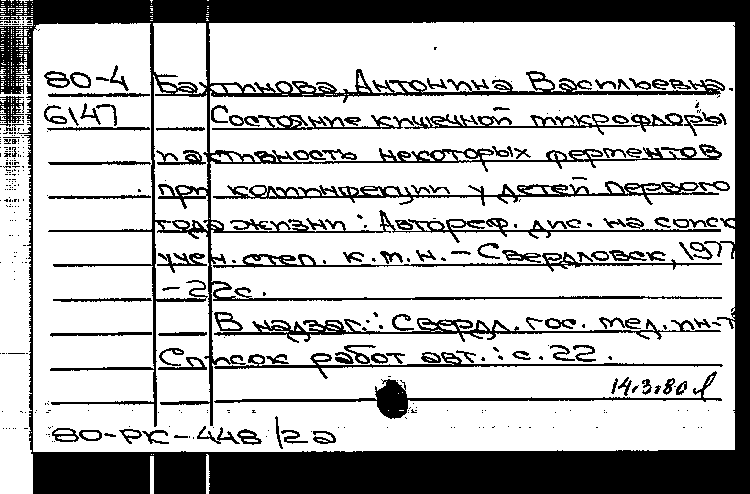 80-4 Бахтинова, Антонина Васильевна.
6147 Состояние кишечной микрофлоры
и активность некоторых ферментов
при колиинфекции у детей первого
года жизни : Автореф. дис. на соиск
учен. степ. к.м.н. – Свердловск, 1977
-22с.
В надзаг.: Свердл. гос. мед. ин-т
Список работ авт.: с. 22.
14.3.80
80-РК-448/2а